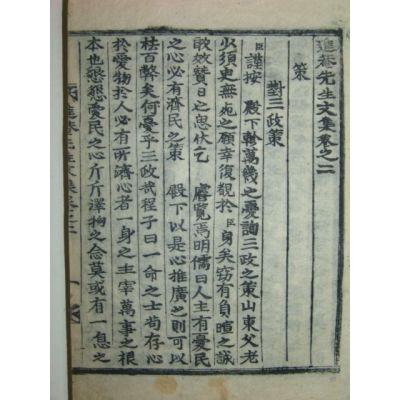 進菴先生文集卷之二
策
對三政策
臣謹按 殿下軫萬幾之憂詢三政之策山東父老
必須吏無死之願幸復覩於 臣身矣窃有負暄之誠
敢效贊日之思伏乞 睿覽焉明儒曰人主有憂民
之心必有濟民之策 殿下以是心推廣之則可以
祛百弊矣何憂乎三政哉程子曰一命之士苟存心
於愛物於人必有所濟心者一身之主宰萬事之根
本也懇怨愛民之心斤斤澤物之念莫或有一息之